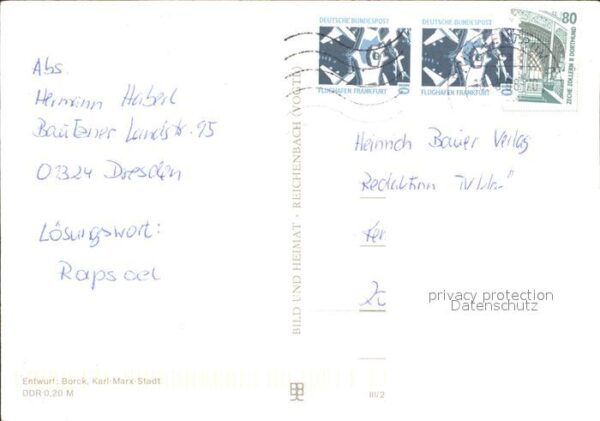 DEUTSCHE BUNDESPOST
FLUGHAFEN FRANKFURT
10
DEUTSCHE BUNDESPOST
FLUGHAFEN FRANKFURT
10
80
ZECHE ZOLLERN II DORTMUND
Abs.
Hermann Haberl
Bautzner Landstr. 95
01324 Dresden
Lösungswort:
Rapsoel
BILD UND HEIMAT · REICHENBACH (VOGTL)
Heinrich Bauer Verlag
Redaktion
privacy protection
Datenschutz
Entwurf: Borck, Karl-Marx-Stadt
DDR 0,20 M
III/2